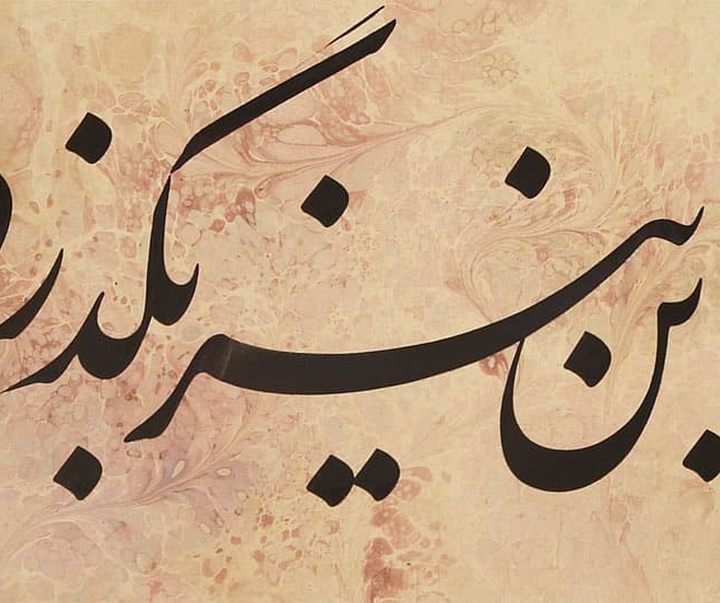 ین نیز بگذرد